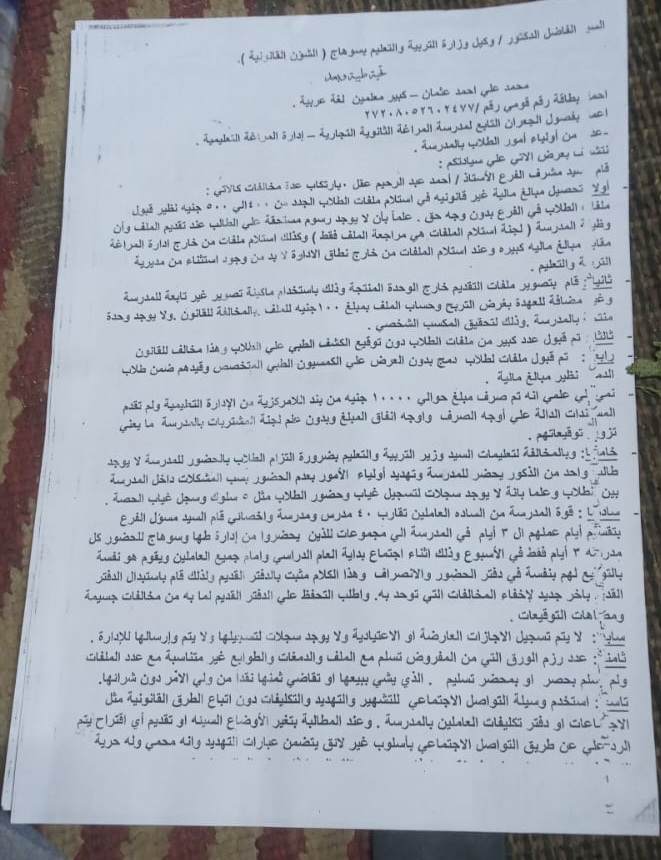 السيد الفاضل الدكتور / وكيل وزارة التربية والتعليم بسوهاج ( الشئون القانونية ).
تحية طيبة وبعد
محمد علي احمد عثمان – كبير معلمين لغة عربية .
بطاقة رقم قومي رقم /٢٧٢٠٨٠٥٢٦٠٢٤٧٧
بفصول الجعران التابع لمدرسة المراغة الثانوية التجارية – إدارة المراغة التعليمية .
من أولياء أمور الطلاب بالمدرسة .
بعرض الاتي علي سيادتكم :
قام سيد مشرف الفرع الأستاذ / أحمد عبد الرحيم عقل ،بارتكاب عدة مخالفات كالاتي :
أولا تحصيل مبالغ مالية غير قانونيه في استلام ملفات الطلاب الجدد من ٤٠٠ الي ٥٠٠ جنيه نظير قبول
ملفا الطلاب في الفرع بدون وجه حق . علماً بأن لا يوجد رسوم مستحقة علي الطالب عند تقديم الملف وأن
المدرسة ( لجنة استلام الملفات هي مراجعة الملف فقط ) وكذلك استلام ملفات من خارج إدارة المراغة
مقابل مبالغ ماليه كبيره وعند استلام الملفات من خارج نطاق الادارة لا بد من وجود استثناء من مديرية
التربية والتعليم .
ثانيا: قام بتصوير ملفات التقديم خارج الوحدة المنتجة وذلك باستخدام ماكينة تصوير غير تابعة للمدرسة
وغير مضافة للعهدة بغرض التربح وحساب الملف بمبلغ ١٠٠جنيه للملف .بالمخالفة للقانون .ولا يوجد وحدة
منتجة بالمدرسة .وذلك لتحقيق المكسب الشخصي .
ثالثا : تم قبول عدد كبير من ملفات الطلاب دون توقيع الكشف الطبي علي الطلاب وهذا مخالف للقانون
رابعا : تم قبول ملفات لطلاب دمج بدون العرض علي الكمسيون الطبي المتخصص وقيدهم ضمن طلاب
الدمج نظير مبالغ مالية .
نمي إلي علمي انه تم صرف مبلغ حوالي ١٠٠٠٠ جنيه من بند اللامركزية من الإدارة التعليمية ولم تقدم
المستندات الدالة علي أوجه الصرف واوجه انفاق المبلغ وبدون علم لجنة المشتريات بالمدرسة ما يعني
توقيعاتهم .
خامسا: وبالمخالفة لتعليمات السيد وزير التربية والتعليم بضرورة التزام الطلاب بالحضور للمدرسة لا يوجد
طالب واحد من الذكور يحضر للمدرسة وتهديد أولياء الأمور بعدم الحضور بسبب المشكلات داخل المدرسة
بين الطلاب وعلما بانة لا يوجد سجلات لتسجيل غياب وحضور الطلاب مثل ٥ سلوك وسجل غياب الحصة .
سادسا : قوة المدرسة من الساده العاملين تقارب ٤٠ مدرس ومدرسة واخصائي قام السيد مسؤل الفرع
بتقسيم أيام عملهم ال ٣ أيام في المدرسة الي مجموعات للذين يحضروا من إدارة طها وسوهاج للحضور كل
٣ أيام فقط في الأسبوع وذلك اثناء اجتماع بداية العام الدراسي وامام جميع العاملين ويقوم هو نفسة
بالتوقيع لهم بنفسة في دفتر الحضور والانصراف وهذا الكلام مثبت بالدفتر القديم ولذلك قام باستبدال الدفتر
القديم بأخر جديد لإخفاء المخالفات التي توحد به. واطلب التحفظ علي الدفتر القديم لما به من مخالفات جسيمة
ومضاهات التوقيعات .
سابعا: لا يتم تسجيل الاجازات العارضة او الاعتيادية ولا يوجد سجلات لتسجيلها ولا يتم وإرسالها للإدارة .
ثامنا : عدد رزم الورق التي من المفروض تسلم مع الملف والدمغات والطوابع غير متناسبة مع عدد الملفات
ولم تسلم بحصر او بمحضر تسليم . الذي يشي ببيعها او تقاضي ثمنها نقدا من ولي الامر دون شرائها.
تاسعا : استخدم وسيلة التواصل الاجتماعي للتشهير والتهديد والتكليفات دون اتباع الطرق القانونية مثل
الاجتماعات او دفتر تكليفات العاملين بالمدرسة . وعند المطالبة بتغير الأوضاع السيئه او تقديم أي اقتراح يتم
الرد علي عن طريق التواصل الاجتماعي بأسلوب غير لائق يتضمن عبارات التهديد وانه محمي وله حرية